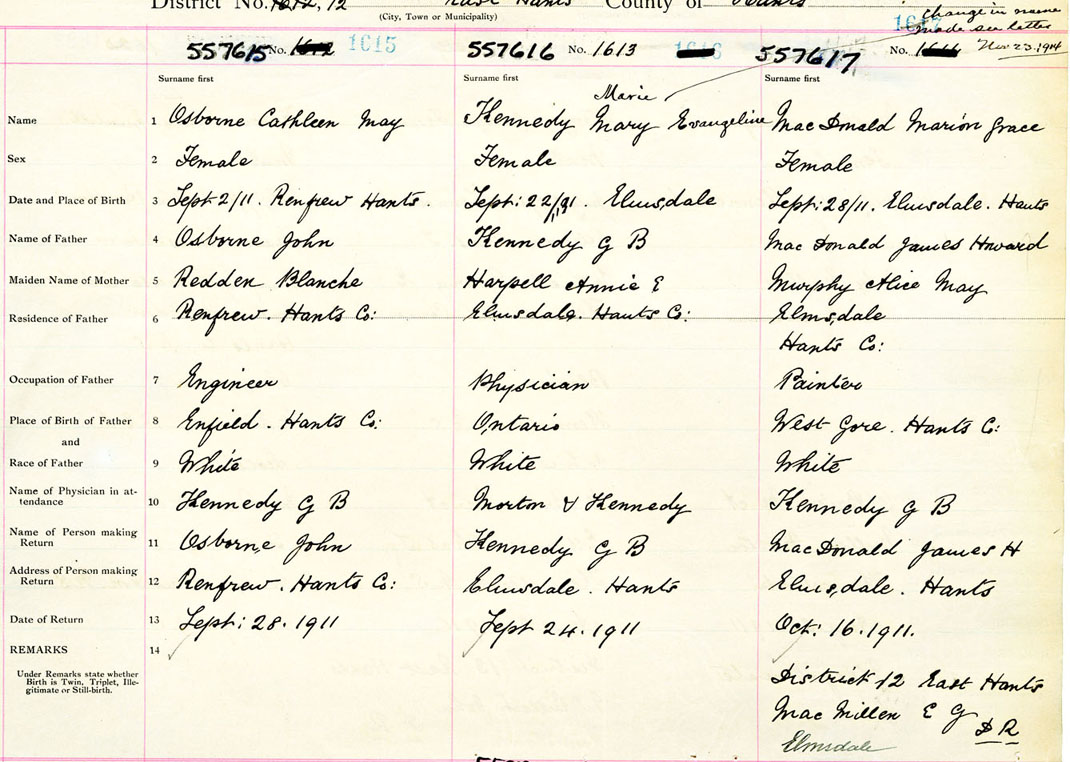 District No. 12 East Hants County of Hants
(City, Town or Municipality)
Change in name
made see letter
Nov 23.1914
557615 No. 1612 1615 557616 No. 1613 557617 No.
Surname first Surname first Surname first
Marie
Name 1 Osborne Cathleen May Kennedy Mary Evangeline MacDonald Marion Grace
Sex 2 Female Female Female
Date and Place of Birth 3 Sept 2/11. Renfrew Hants. Sept: 22/11. Elmsdale Sept: 28/11. Elmsdale. Hants
Name of Father 4 Osborne John Kennedy G B MacDonald James Howard
Maiden Name of Mother 5 Redden Blanche Harpell Annie E Murphy Alice May
Residence of Father 6 Renfrew. Hants Co: Elmsdale. Hants Co: Elmsdale
Hants Co:
Occupation of Father 7 Engineer Physician Painter
Place of Birth of Father 8 Enfield. Hants Co: Ontario West Gore. Hants Co:
and
Race of Father 9 White White White
Name of Physician in at-
tendance 10 Kennedy G B Morton & Kennedy Kennedy G B
Name of Person making
Return 11 Osborne John Kennedy G B MacDonald James H
Address of Person making
Return 12 Renfrew. Hants Co: Elmsdale. Hants Elmsdale. Hants
Date of Return 13 Sept: 28.1911 Sept 24.1911 Oct: 16.1911.
REMARKS 14
Under Remarks state whether
Birth is Twin, Triplet, Ille-
gitimate or Still-birth.
District 12 East Hants
MacMillen E G D R
Elmsdale